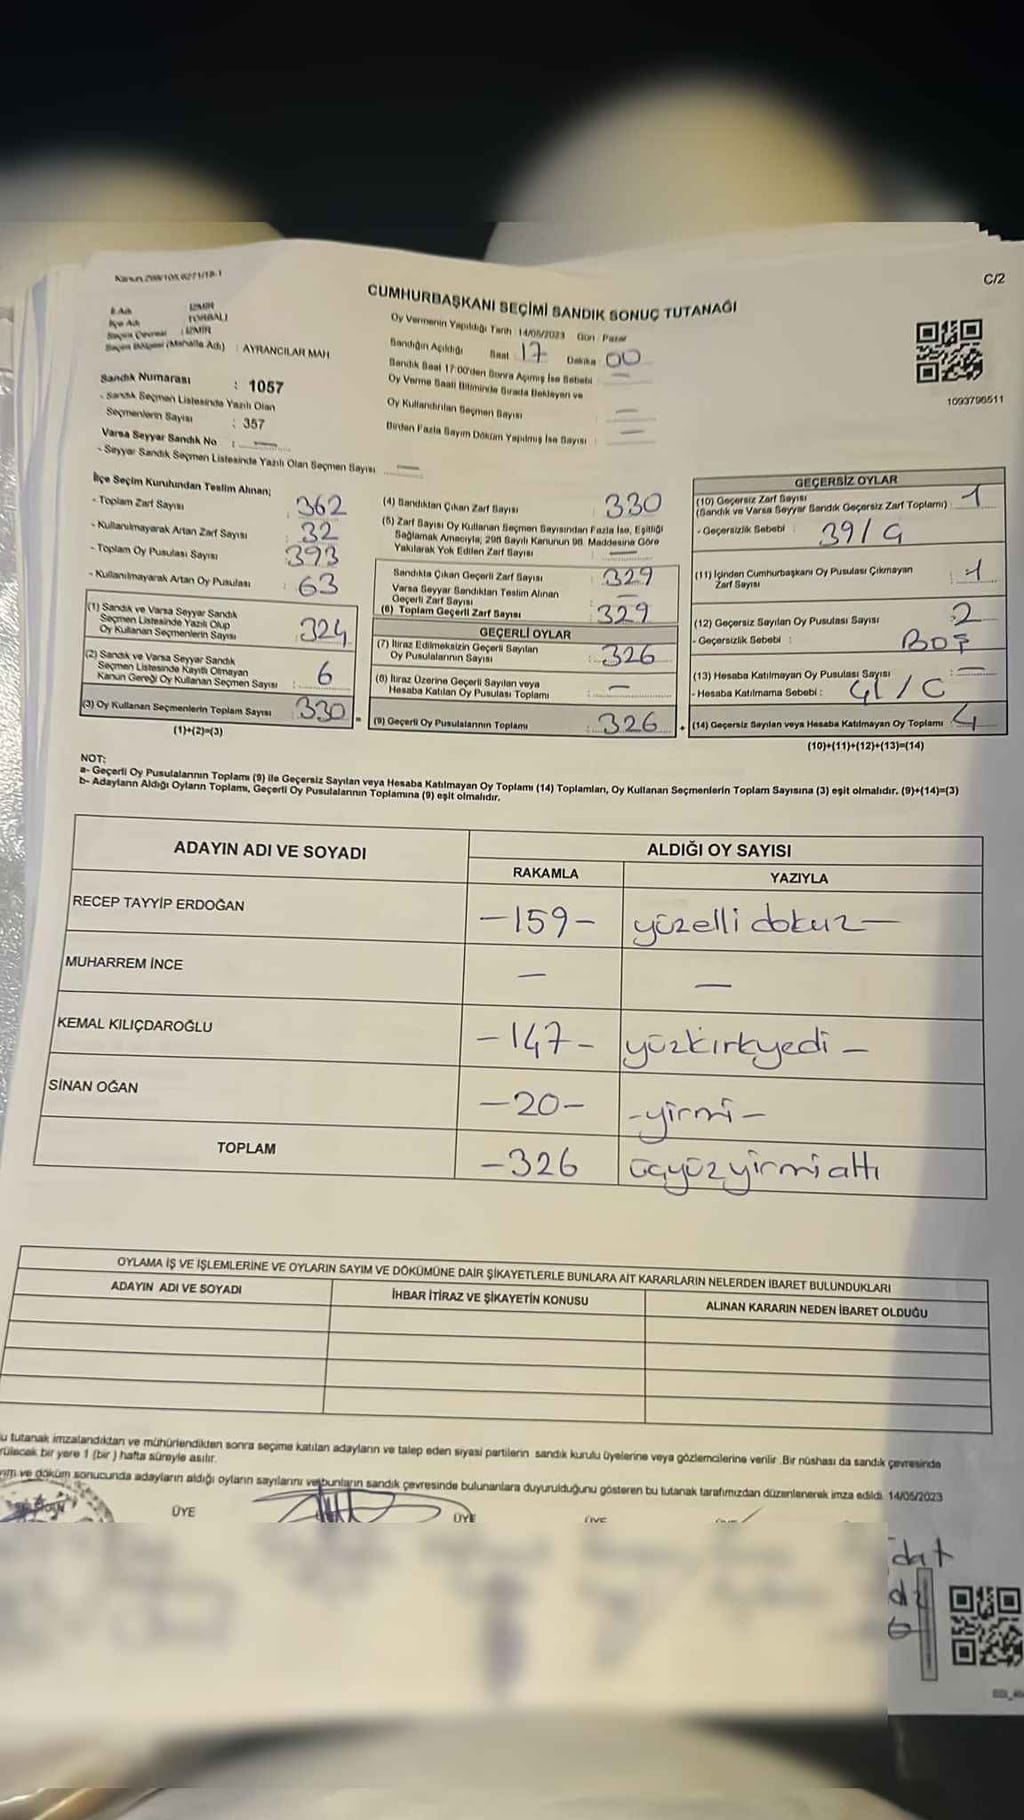 Kanun:298/105,6271/18-1
C/2
CUMHURBAŞKANI SEÇİMİ SANDIK SONUÇ TUTANAĞI
İl Adı : İZMİR
İlçe Adı : TORBALI
Seçim Çevresi : İZMİR
Seçim Bölgesi (Mahalle Adı) : AYRANCILAR MAH.
Sandık Numarası : 1057
- Sandık Seçmen Listesinde Yazılı Olan
Seçmenlerin Sayısı : 357
Varsa Seyyar Sandık No : —
- Seyyar Sandık Seçmen Listesinde Yazılı Olan Seçmen Sayısı —
Oy Vermenin Yapıldığı Tarih : 14/05/2023 Gün : Pazar
Sandığın Açıldığı Saat 17 Dakika 00
Sandık Saat 17:00'den Sonra Açımış İse Sebebi —
Oy Verme Saati Bitiminde Sırada Bekleyen ve
Oy Kullandırılan Seçmen Sayısı —
Birden Fazla Sayım Döküm Yapılmış İse Sayısı : —
1093796511
İlçe Seçim Kurulundan Teslim Alınan;
- Toplam Zarf Sayısı : 362
- Kullanılmayarak Artan Zarf Sayısı : 32
- Toplam Oy Pusulası Sayısı : 393
- Kullanılmayarak Artan Oy Pusulası : 63
(1) Sandık ve Varsa Seyyar Sandık
Seçmen Listesinde Yazılı Olup
Oy Kullanan Seçmenlerin Sayısı : 324
(2) Sandık ve Varsa Seyyar Sandık
Seçmen Listesinde Kayıtlı Olmayan
Kanun Gereği Oy Kullanan Seçmen Sayısı : 6
(3) Oy Kullanan Seçmenlerin Toplam Sayısı : 330
(1)+(2)=(3)
=
(4) Sandıktan Çıkan Zarf Sayısı : 330
(5) Zarf Sayısı Oy Kullanan Seçmen Sayısından Fazla İse, Eşitliği
Sağlamak Amacıyla; 298 Sayılı Kanunun 98. Maddesine Göre
Yakılarak Yok Edilen Zarf Sayısı : —
Sandıkta Çıkan Geçerli Zarf Sayısı : 329
Varsa Seyyar Sandıktan Teslim Alınan
Geçerli Zarf Sayısı : —
(6) Toplam Geçerli Zarf Sayısı : 329
GEÇERLİ OYLAR
(7) İtiraz Edilmeksizin Geçerli Sayılan
Oy Pusulalarının Sayısı : 326
(8) İtiraz Üzerine Geçerli Sayılan veya
Hesaba Katılan Oy Pusulası Toplamı : —
(9) Geçerli Oy Pusulalarının Toplamı : 326
+
GEÇERSİZ OYLAR
(10) Geçersiz Zarf Sayısı
(Sandık ve Varsa Seyyar Sandık Geçersiz Zarf Toplamı) : 1
- Geçersizlik Sebebi : 39/G
(11) İçinden Cumhurbaşkanı Oy Pusulası Çıkmayan
Zarf Sayısı : 1
(12) Geçersiz Sayılan Oy Pusulası Sayısı : 2
- Geçersizlik Sebebi : BOŞ
(13) Hesaba Katılmayan Oy Pusulası Sayısı : —
- Hesaba Katılmama Sebebi : 41/C
(14) Geçersiz Sayılan veya Hesaba Katılmayan Oy Toplamı : 4
(10)+(11)+(12)+(13)=(14)
NOT:
a- Geçerli Oy Pusulalarının Toplamı (9) ile Geçersiz Sayılan veya Hesaba Katılmayan Oy Toplamı (14) Toplamları, Oy Kullanan Seçmenlerin Toplam Sayısına (3) eşit olmalıdır. (9)+(14)=(3)
b- Adayların Aldığı Oyların Toplamı, Geçerli Oy Pusulalarının Toplamına (9) eşit olmalıdır.
ADAYIN ADI VE SOYADI
ALDIĞI OY SAYISI
RAKAMLA YAZIYLA
RECEP TAYYİP ERDOĞAN —159— yüzelli dokuz—
MUHARREM İNCE — —
KEMAL KILIÇDAROĞLU —147— yüzkırkyedi —
SİNAN OĞAN —20— —yirmi—
TOPLAM —326 üçyüzyirmialtı
OYLAMA İŞ VE İŞLEMLERİNE VE OYLARIN SAYIM VE DÖKÜMÜNE DAİR ŞİKAYETLERLE BUNLARA AİT KARARLARIN NELERDEN İBARET BULUNDUKLARI
ADAYIN ADI VE SOYADI İHBAR İTİRAZ VE ŞİKAYETİN KONUSU ALINAN KARARIN NEDEN İBARET OLDUĞU
u tutanak imzalandıktan ve mühürlendikten sonra seçime katılan adayların ve talep eden siyasi partilerin sandık kurulu üyelerine veya gözlemcilerine verilir .Bir nüshası da sandık çevresinde
rülecek bir yere 1 (bir ) hafta süreyle asılır.
yım ve döküm sonucunda adayların aldığı oyların sayılarını ve bunların sandık çevresinde bulunanlara duyurulduğunu gösteren bu tutanak tarafımızdan düzenlenerek imza edildi. 14/05/2023
ÜYE ÜYE ÜYE
dat